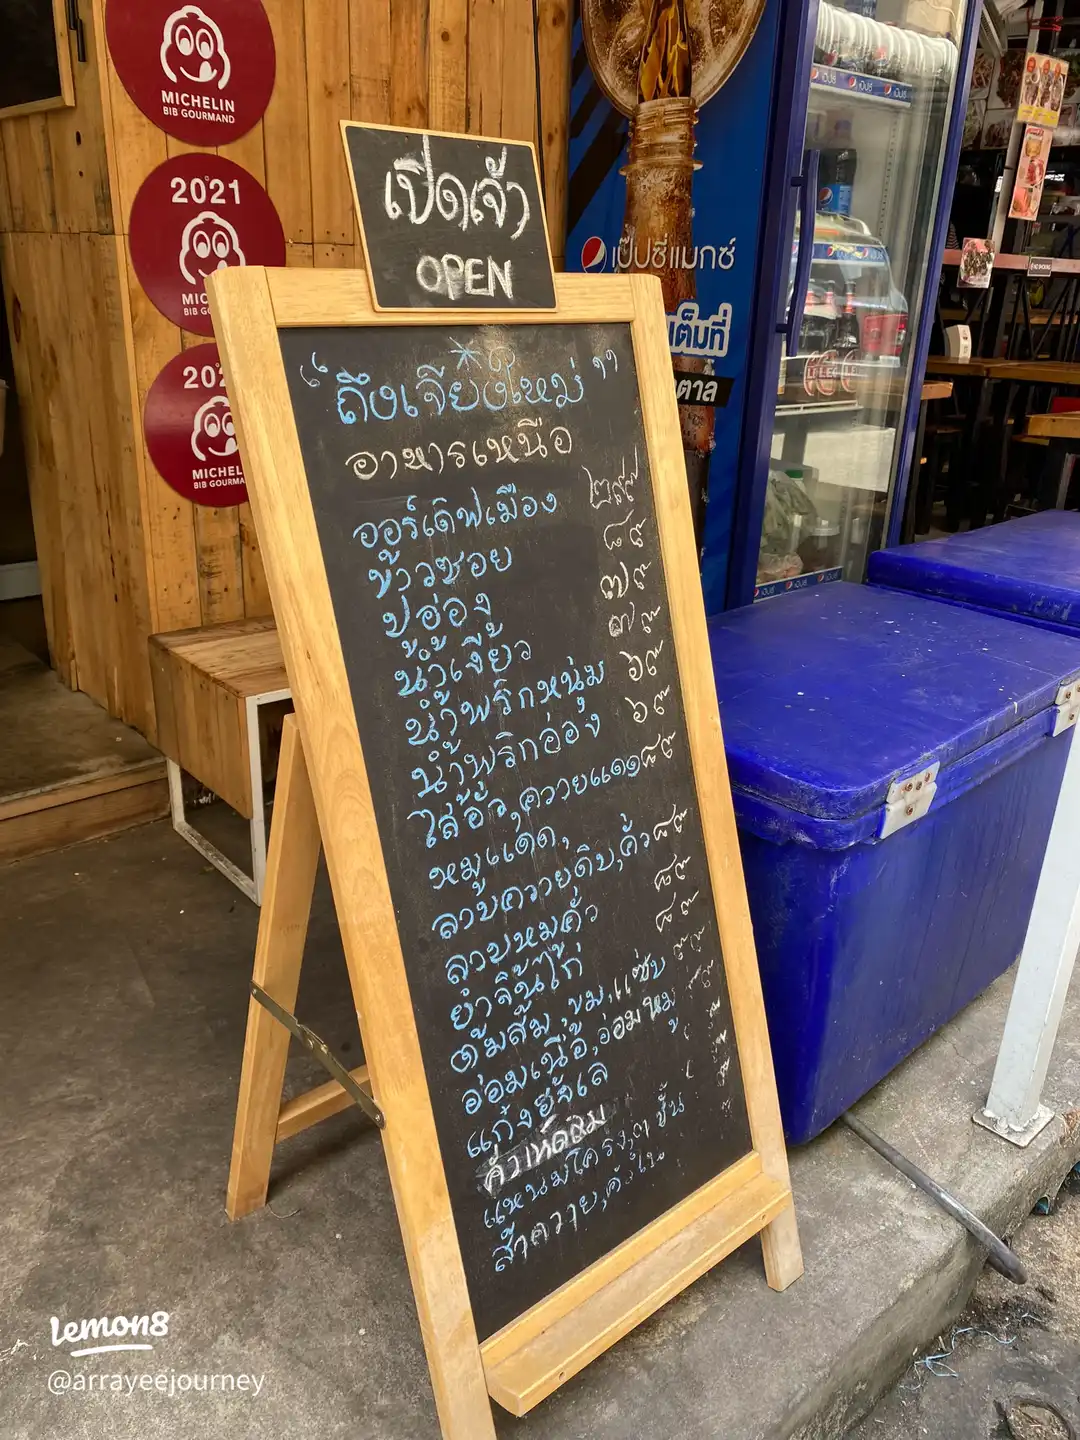 MICHELIN
BIB GOURMAND
2021
MIC
BIB GO
202
MICHEL
BIB GOURMA
เปิดเจ้า
OPEN
เป๊ปซี่แมกซ์
เต็มที่
ตาล
"ถึงเจียงใหม่"
อาหารเหนือ
ออร์เดิฟเมือง ๒๙๙
ข้าวซอย ๘๙
ปูอ่อง ๗๙
น้ำเงี้ยว ๗๙
น้ำพริกหนุ่ม ๖๙
น้ำพริกอ่อง ๖๙
ไส้อั่ว,ควายแดด ๘๙
หมูแดด,
ลาบควายดิบ,คั่ว ๘๙
ลาบหมูคั่ว ๘๙
ยำลิ้นไก่ ๘๙
ต้มส้ม,ขม,แซ่บ
อ่อมเนื้อ,อ่อมหมู
แก๋งฮังเล
แหนมโครง,๓ ชั้น
ส้าควาย,
เป๊ปซี่
lemon8
@arrayeejourney